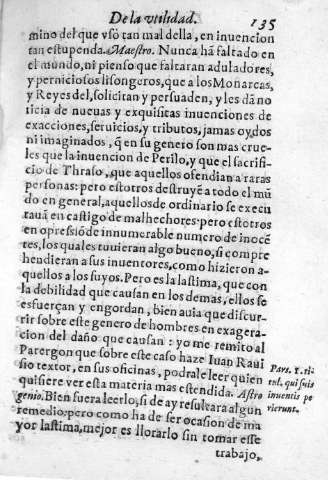 De la vtilidad.
135
mino del que vsò tan mal della, en inuencion
tan estupenda. Maestro. Nunca hã faltado en
el mundo, ni pienso que faltaran aduladores,
y perniciosos lisongeros, que a los Monarcas,
y Reyes del, solicitan y persuaden, y les dã no
ticia de nueuas y exquisitas inuenciones de
exacciones, seruicios, y tributos, jamas oydos
ni imaginados, q̃ en su genero son mas crue-
les que la inuencion de Perillo, y que el sacrifi-
cio de Thraso, que aquellos ofendian a raras
personas: pero estotros destruyẽ a todo el mũ
do en general, aquellos de ordinario se execu
tauã en castigo de malhechores: pero estotros
en opressiõ de innumerable numero de inocẽ
tes, los quales tuuieran algo bueno, si compre
hendieran a sus inuentores, como hizieron a-
quellos a los suyos. Pero es la lastima, que con
la debilidad que causan en los demas, ellos se
esfuerçan y engordan, bien auia que discur-
rir sobre este genero de hombres en exagera-
cion del daño que causan: yo me remito al
Parergon que sobre este caso haze Iuan Raui
sio textor, en sus oficinas, podrale leer quien
quisiere ver esta materia mas estendida. Astro
genio. Bien fuera leerlo, si de ay resultara algun
remedio: pero como ha de ser ocasion de ma
yor lastima, mejor es llorarlo sin tomar esse
trabajo,
Pars. 1. ti-
tul. qui suis
inuentis pe
rierunt.